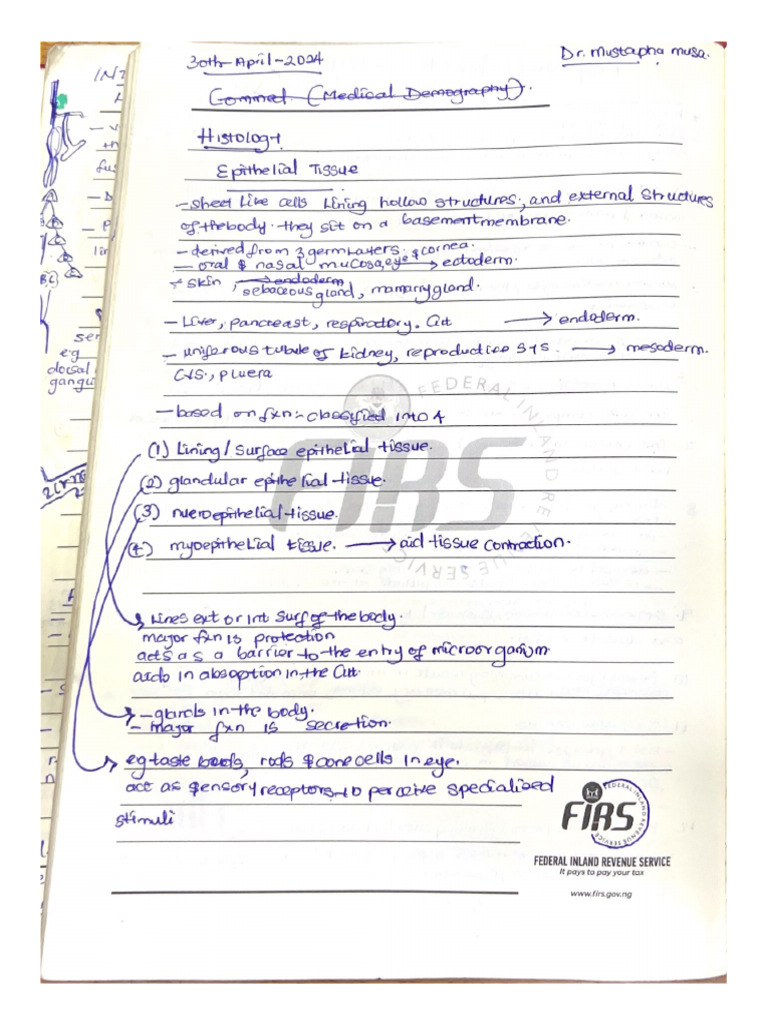 30th-April-2024
Dr. Mustapha Musa.
Commed. (Medical Demography).
Histology
Epithelial Tissue
- sheet like cells lining hollow structures, and external structures
of the body. they sit on a basement membrane.
- derived from 3 germ layers.
- oral & nasal mucosa, eye & cornea. → ectoderm.
skin, → endoderm
sebaceous gland, mamarry gland.
- Liver, pancreast, respiratory. Git → endoderm.
- uniferous tubule of kidney, reproductive sys. → mesoderm.
CVS., pluera
- based on fxn:- classified into 4
(1) Lining/Surface epithelial tissue.
(2) glandular epithelial tissue.
(3) nueroepithelial tissue.
(4) myoepithelial tissue. → aid tissue contraction.
Lines ext or int surf of the body.
major fxn is protection
acts as a barrier to the entry of microorganism
aids in absoption in the Git.
- glands in the body.
- major fxn is secretion.
eg taste buds, rods & cone cells in eye.
act as sensory receptors to perceive specialised
stimuli
FEDERAL INLAND REVENUE SERVICE
FIRS
FEDERAL INLAND REVENUE SERVICE
FIRS
FEDERAL INLAND REVENUE SERVICE
It pays to pay your tax
www.firs.gov.ng
INT
eg
dorsal